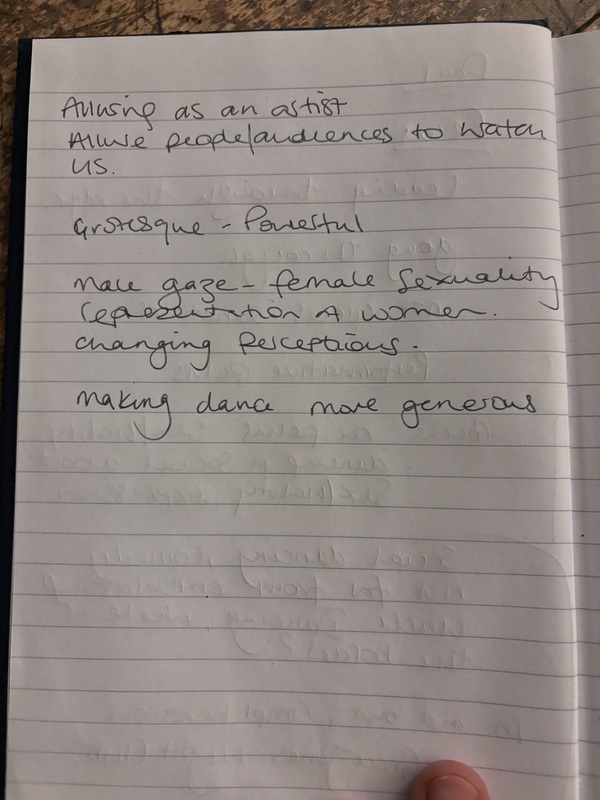 Alluring as an artist
Allure people/audiences to watch
us.
Grotesque - Powerful
Male gaze - female sexuality
representation of women.
changing perceptions.
Making dance more generous